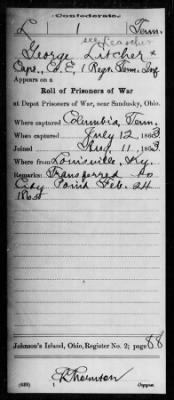 Confederate.
L 1 Tenn.
see Leacher
George Litcher
Capt., Co. E, 1 Regt. Tenn. Inf.
Appears on a
Roll of Prisoners of War
at Depot Prisoners of War, near Sandusky, Ohio.
Where captured Columbia, Tenn.
When captured July 12, 1863
Joined Aug. 11, 1863
Where from Louisville, Ky.
Remarks: Transferred to
City Point Feb. 24
1865
Johnson's Island, Ohio, Register No. 2; page 88
(639)
Copyist.